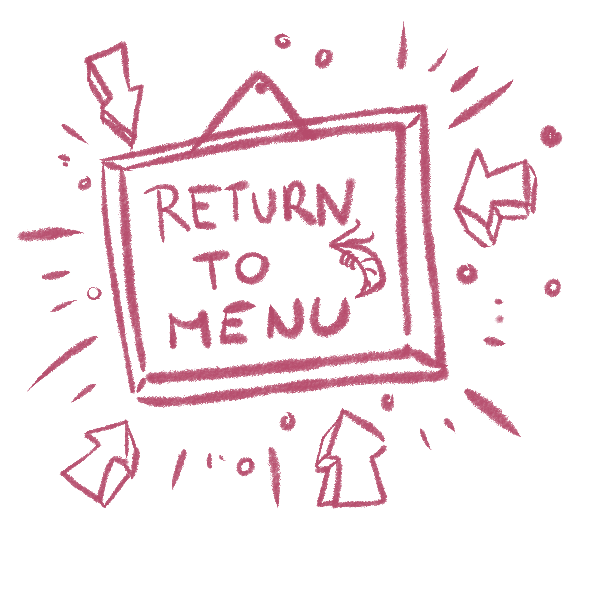 RETURN
TO
MENU